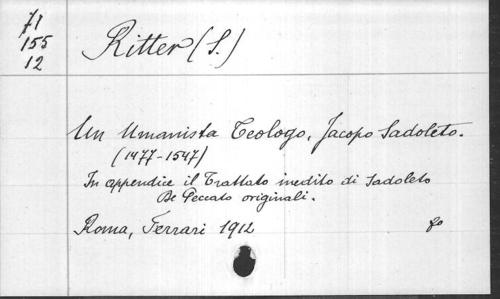 71
155
12
Ritter (S.)
Un Umanista Teologo, Jacopo Sadoleto.
(1477-1547)
In appendice il Trattato inedito di Sadoleto
De Peccato originali.
Roma, Ferrari 1912